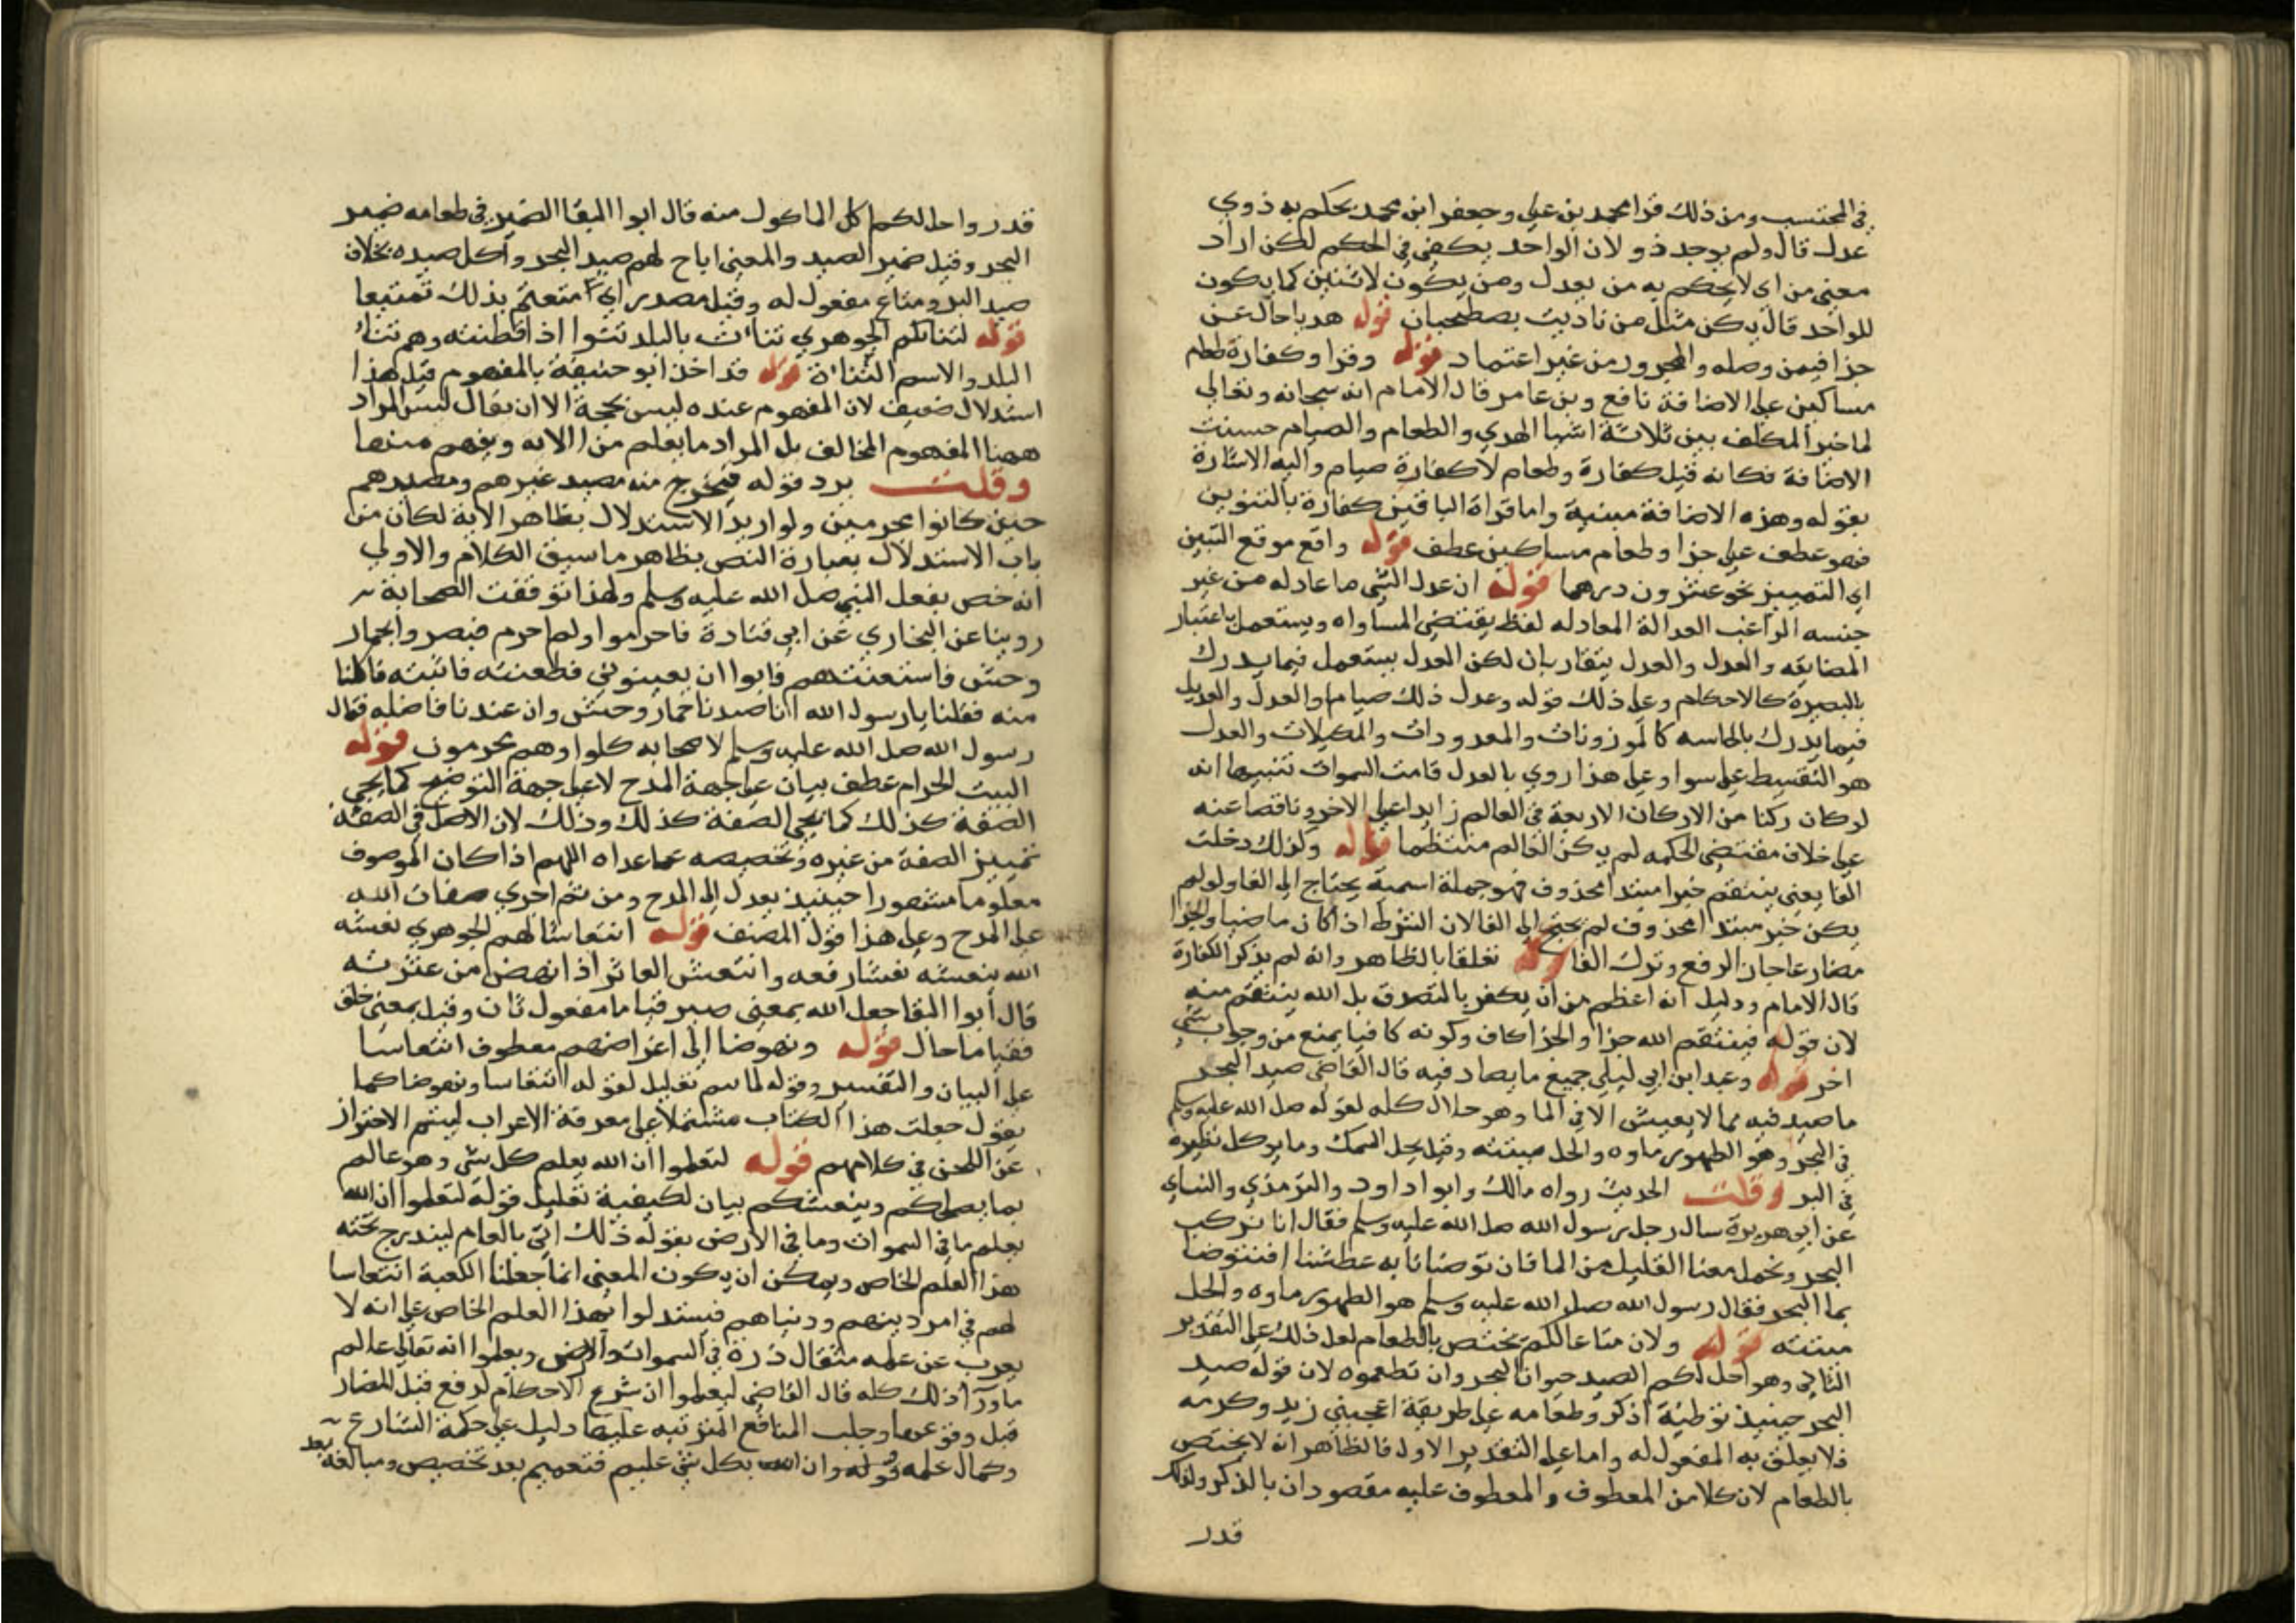 في المحتسب ومن ذلك قرا محمد بن علي وجعفر ابن محمد يحكم به ذوي
عدل قال ولم يوجد ذو لان الواحد يكفي في الحكم لكن اراد
معنى من اى لايحكم به من بعدل ومن يكون لاثنين كما يكون
للواحد قال يكن مثل من ناديت يصطحبان قوله هديا حال عن
جزا فيمن وصله والمجرور من غير اعتماد قوله وقرا وكفارة طعام
مساكين على الاضافة نافع وبن عامر قال الامام انه سبحانه وتعالى
لما خير المكلف بين ثلاثة اشيا الهدي والطعام والصيام حسنت
الاضافة فكانه قيل كفارة وطعام لا كفارة صيام واليه الاشارة
بقوله وهذه الاضافة مبينة واما قراة الباقين كفارة بالتنوين
فهو عطف على جزا وطعام مساكين عطف قوله واقع موقع التبين
اى التمييز نحو عشرون درهما قوله ان عدل الشي ما عادله من غير
جنسه الراغب العدالة المعادله لفظ يقتضي المساواه ويستعمل باعتبار
المضايفه والعدل والعدل يتقاربان لكن العدل يستعمل فيما يدرك
بالبصيرة كالاحكام وعلى ذلك قوله وعدل ذلك صياما والعدل والعديل
فيما يدرك بالحاسه كالموزونات والمعدودات والمكيلات والعدل
هو التقسيط على سوا وعلى هذا روي بالعدل قامت السموات تنبيها انه
لو كان ركنا من الاركان الاربعة في العالم زايدا على الاخر وناقصا عنه
على خلاف مقتضى الحكمه لم يكن العالم منتظما قوله ولذلك دخلت
الفا يعني ينتقم خبرا مبتدا محذوف فهو جملة اسمية يحتاج الى الفا ولو لم
يكن خبر مبتدا محذوف لم يحتج الى الفا لان الشرط اذا كان ماضيا والجزا
مضارعا جاز الرفع وترك الفا قوله تعلقا بالظاهر وانه لم يذكر الكفارة
قال الامام ودليل انه اعظم من ان يكفر بالتصدق بل الله ينتقم منه
لان قوله فينتقم الله جزا والجزا كاف وكونه كافيا يمنع من وجوب شي
اخر قوله وعند ابن ابي ليلى جميع ما يصاد فيه قال القاضى صيد البحر
ما صيد فيه مما لا يعيش الا في الما وهو حلال كله لقوله صلى الله عليه وسلم
في البحر وهو الطهور ماوه والحل ميتته وقيل يحل السمك وما يوكل نظيره
في البر وقلت الحديث رواه مالك وابوا داود والترمذي والنساي
عن ابي هريرة سال رجل رسول الله صلى الله عليه وسلم فقال انا نركب
البحر ونحمل معنا القليل من الما فان توضانا به عطشنا افنتوضا
بما البحر فقال رسول الله صلى الله عليه وسلم هو الطهور ماوه والحل
ميتته قوله ولان متاعا لكم يختص بالطعام لعل ذلك على التقدير
الثاني وهو احل لكم الصيد حيوانا البحر وان تطعموه لان قوله صيد
البحر حينيذ توطية اذكر وطعامه على طريقة اعجبني زيد وكرمه
فلا يعلق به المفعول له واما على التقدير الاول فالظاهر انه لا يختص
بالطعام لان كلا من المعطوف والمعطوف عليه مقصودان بالذكر ولذلك
قدر
قدر واحل لكم اكل الماكول منه قال ابوا البقا الضمير في طعامه ضمير
البحر وقيل ضمير الصيد والمعنى اباح لهم صيد البحر واكل صيده بخلاف
صيد البر ومتاع مفعول له وقيل مصدر اى متعتم بذلك تمتيعا
قوله لتنائكم الجوهري تنات بالبلد تنئوا اذا قطنته وهم تناء
البلد والاسم التناة قوله قد اخذ ابو حنيفة بالمفهوم قيل هذا
استدلال ضعيف لان المفهوم عنده ليس بحجة الا ان يقال ليس المراد
ههنا المفهوم المخالف بل المراد ما يعلم من الايه ويفهم منها
وقلت يرد قوله فيخرج منه مصيد غيرهم ومصيدهم
حين كانوا محرمين ولو اريد الاستدلال بظاهر الاية لكان من
باب الاستدلال بعبارة النص بظاهر ما سيق الكلام والاولى
انه خص بفعل النبي صلى الله عليه وسلم ولهذا توقفت الصحابة
روينا عن البخاري عن ابي قتادة فاحرموا ولم احرم فبصروا بحمار
وحش فاستعنتهم فابوا ان يعينوني فطعنته فاثبته فاكلنا
منه فقلنا يا رسول الله انا صدنا حمار وحش وان عندنا فاضله فقال
رسول الله صلى الله عليه وسلم لاصحابه كلوا وهم محرمون قوله
البيت الحرام عطف بيان على جهة المدح لا على جهة التوضيح كما يجي
الصفة كذلك كما يجي الصفة كذلك وذلك لان الاصل في الصفة
تمييز الصفة من غيره وتخصيصه عما عداه اللهم اذا كان الموصوف
معلوما متصورا حينيذ يعدل الى المدح ومن ثم اجري صفات الله
على المدح وعلى هذا قول المصنف قوله انتعاشا لهم الجوهري نعشه
الله ينعشه نعشا رفعه وانتعش العاثر اذا نهض من عثرته
قال أبوا البقا جعل الله بمعنى صير قياما مفعول ثان وقيل بمعنى خلق
فقياما حال قوله ونهوضا الى اغراضهم معطوف انتعاشا
على البيان والتفسير وقوله لما سم تعليل لقوله انتعاشا ونهوضا كما
يقول جعلت هذا الكتاب مشتملا على معرفة الاعراب ليتم الاحتراز
عن اللحن في كلامهم قوله لتعلموا ان الله يعلم كل شي وهو عالم
بما يصلحكم وينعشكم بيان لكيفية تعليل قوله لتعلموا ان الله
يعلم ما في السموات وما في الارض بقوله ذلك اتى بالعام ليندرج تحته
هذا العلم الخاص ويمكن ان يكون المعنى انما جعلنا الكعبة انتعاشا
لهم في امر دينهم ودنياهم فيستدلوا بهذا العلم الخاص على انه لا
يعزب عن علمه مثقال ذرة في السموات والارض ويعلموا انه تعالى عالم
ما ورا ذلك كله قال القاضي ليعلموا ان شرع الاحكام لدفع قبل المضار
قبل وقوعها وجلب المنافع المترتبه عليها دليل على حكمة الشارع
وكمال علمه قوله وان الله بكل شي عليم فتعميم بعد تخصيص ومبالغة بعد